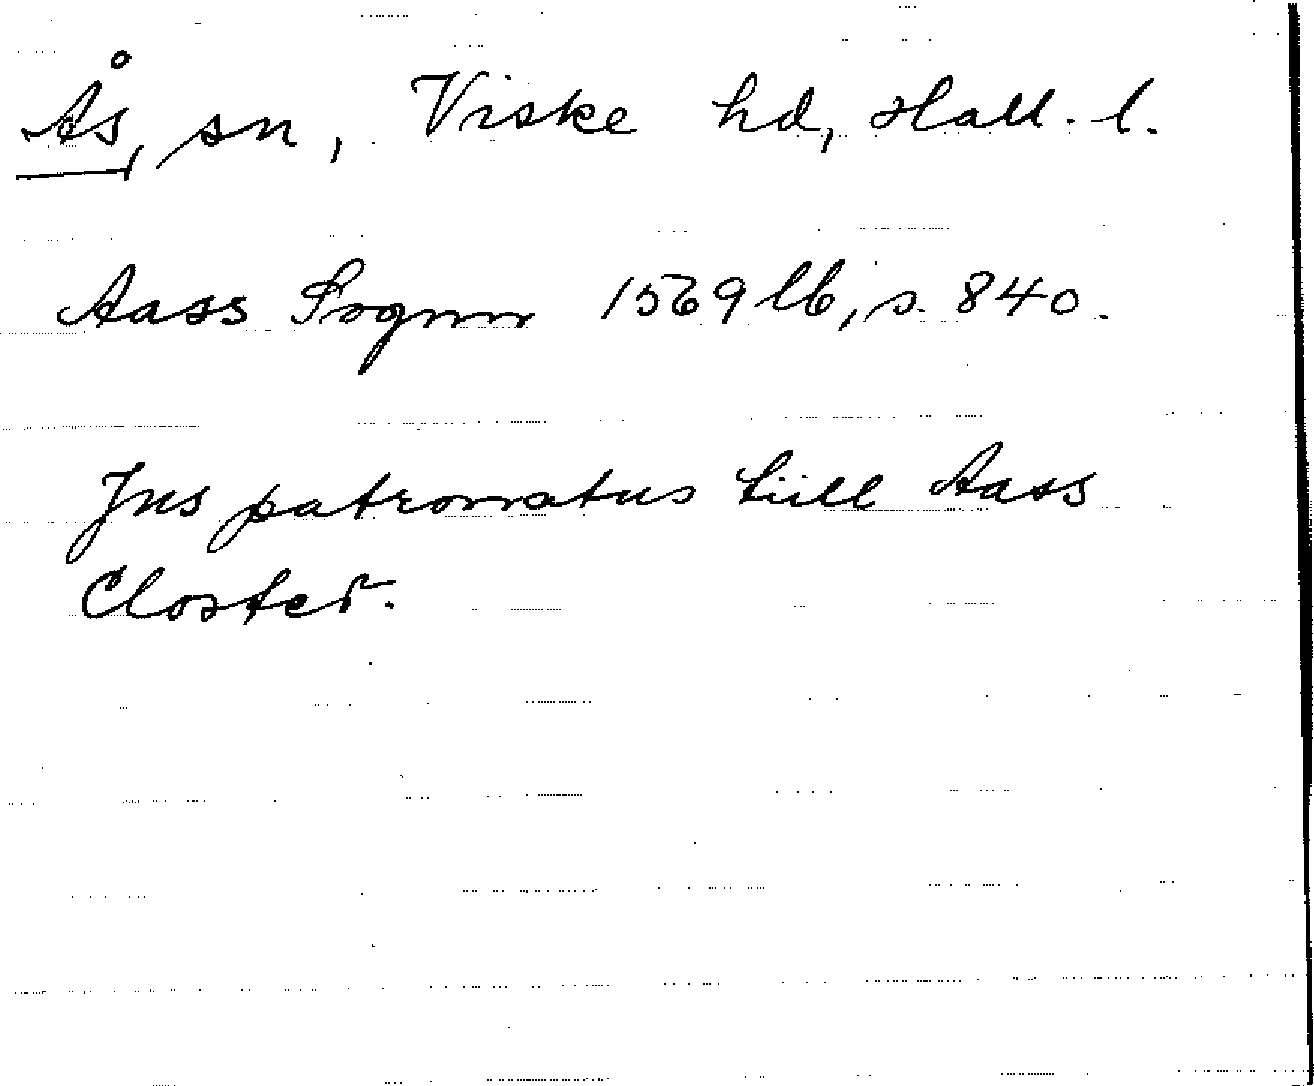 Ås, sn, Viske hd, Hall. l.
Aass Sognn 1569 lb, s. 840.
Jus patronatus till Aass
Closter.